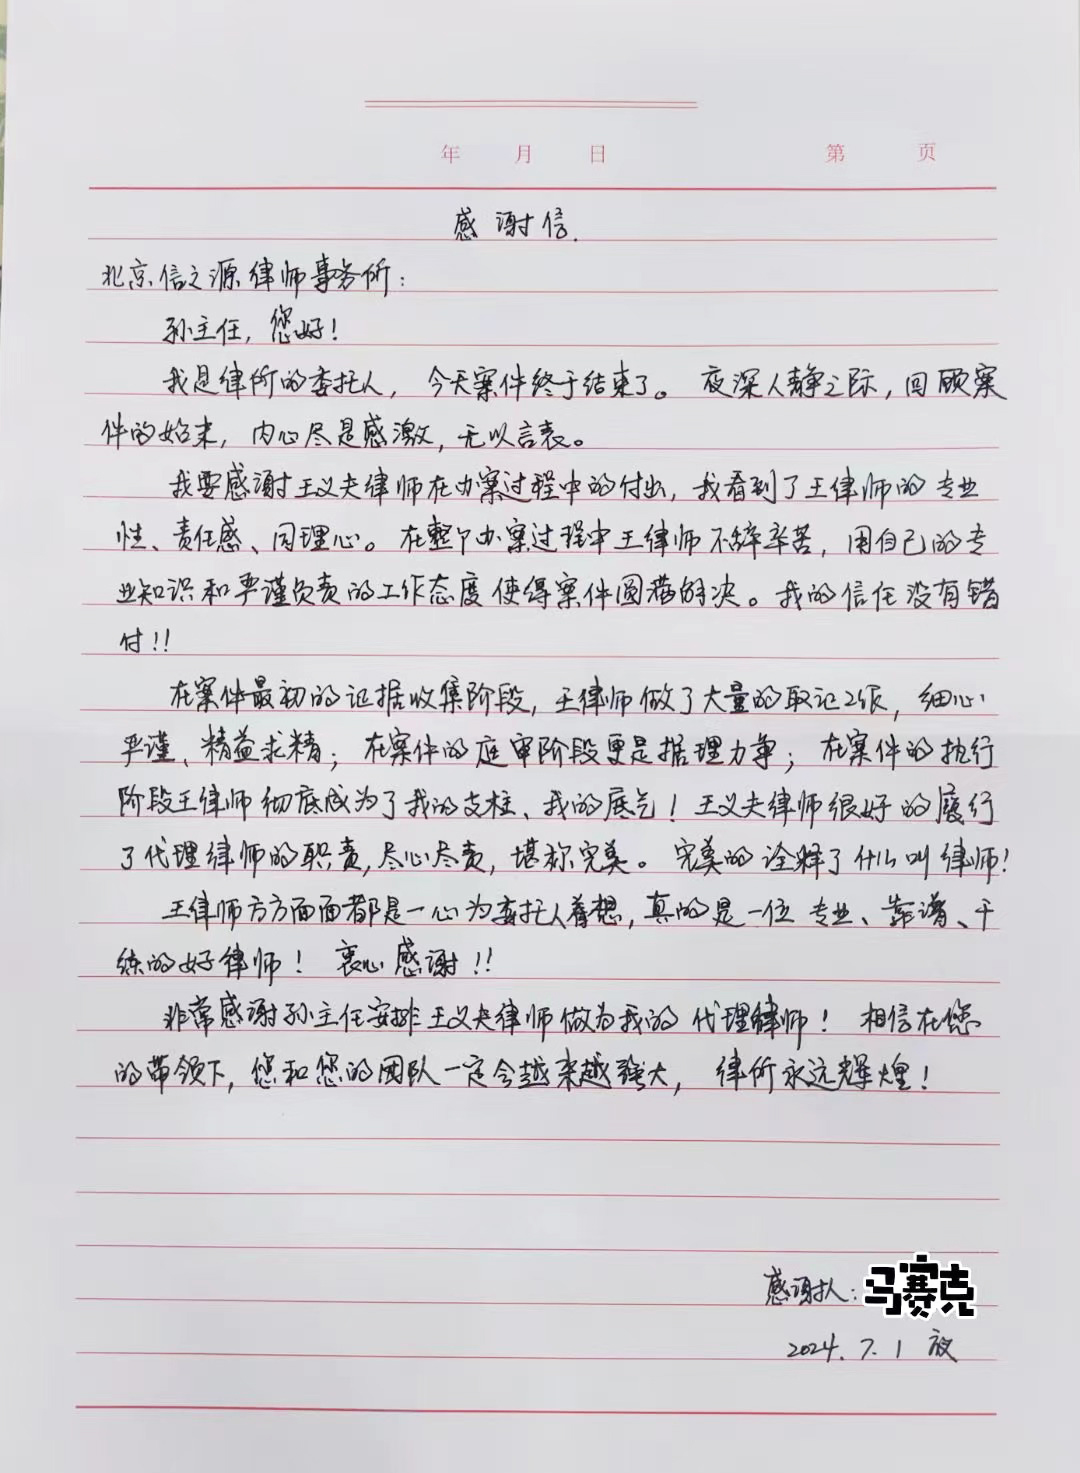 年 月 日 第 页
感谢信.
北京信之源律师事务所:
孙主任,您好!
我是律所的委托人,今天案件终于结束了。夜深人静之际,回顾案
件的始末,内心尽是感激,无以言表。
我要感谢王义夫律师在办案过程中的付出,我看到了王律师的专业
性、责任感、同理心。在整个办案过程中王律师不辞辛苦,用自己的专
业知识和严谨负责的工作态度使得案件圆满解决。我的信任没有错
付!!
在案件最初的证据收集阶段,王律师做了大量的取证工作,细心
严谨、精益求精;在案件的庭审阶段更是据理力争;在案件的执行
阶段王律师彻底成为了我的支柱、我的底气!王义夫律师很好的履行
了代理律师的职责,尽心尽责,堪称完美。完美的诠释了什么叫律师!
王律师方方面面都是一心为委托人着想,真的是一位专业、靠谱、干
练的好律师!衷心感谢!!
非常感谢孙主任安排王义夫律师做为我的代理律师!相信在您
的带领下,您和您的团队一定会越来越强大,律所永远辉煌!
感谢人:马赛克
2024.7.1夜